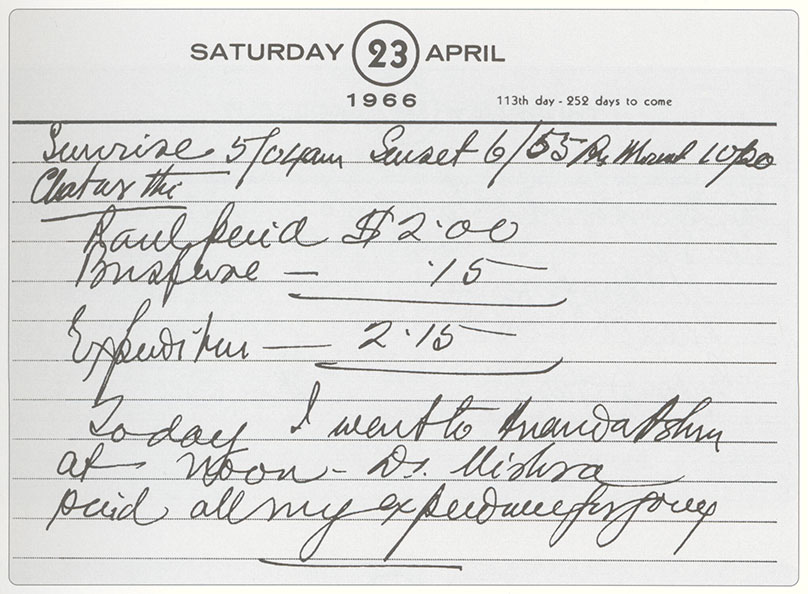 SATURDAY 23 APRIL
1966 113th day - 252 days to come
Sunrise 5/04am Sunset 6/55 Pm 10/20
Chaturthi
Paul paid $2.00
Busfare — .15
Expenditure — 2.15
Today I went to Ananda Ashram
at Noon - Dr. Mishra
paid all my expenditure for going